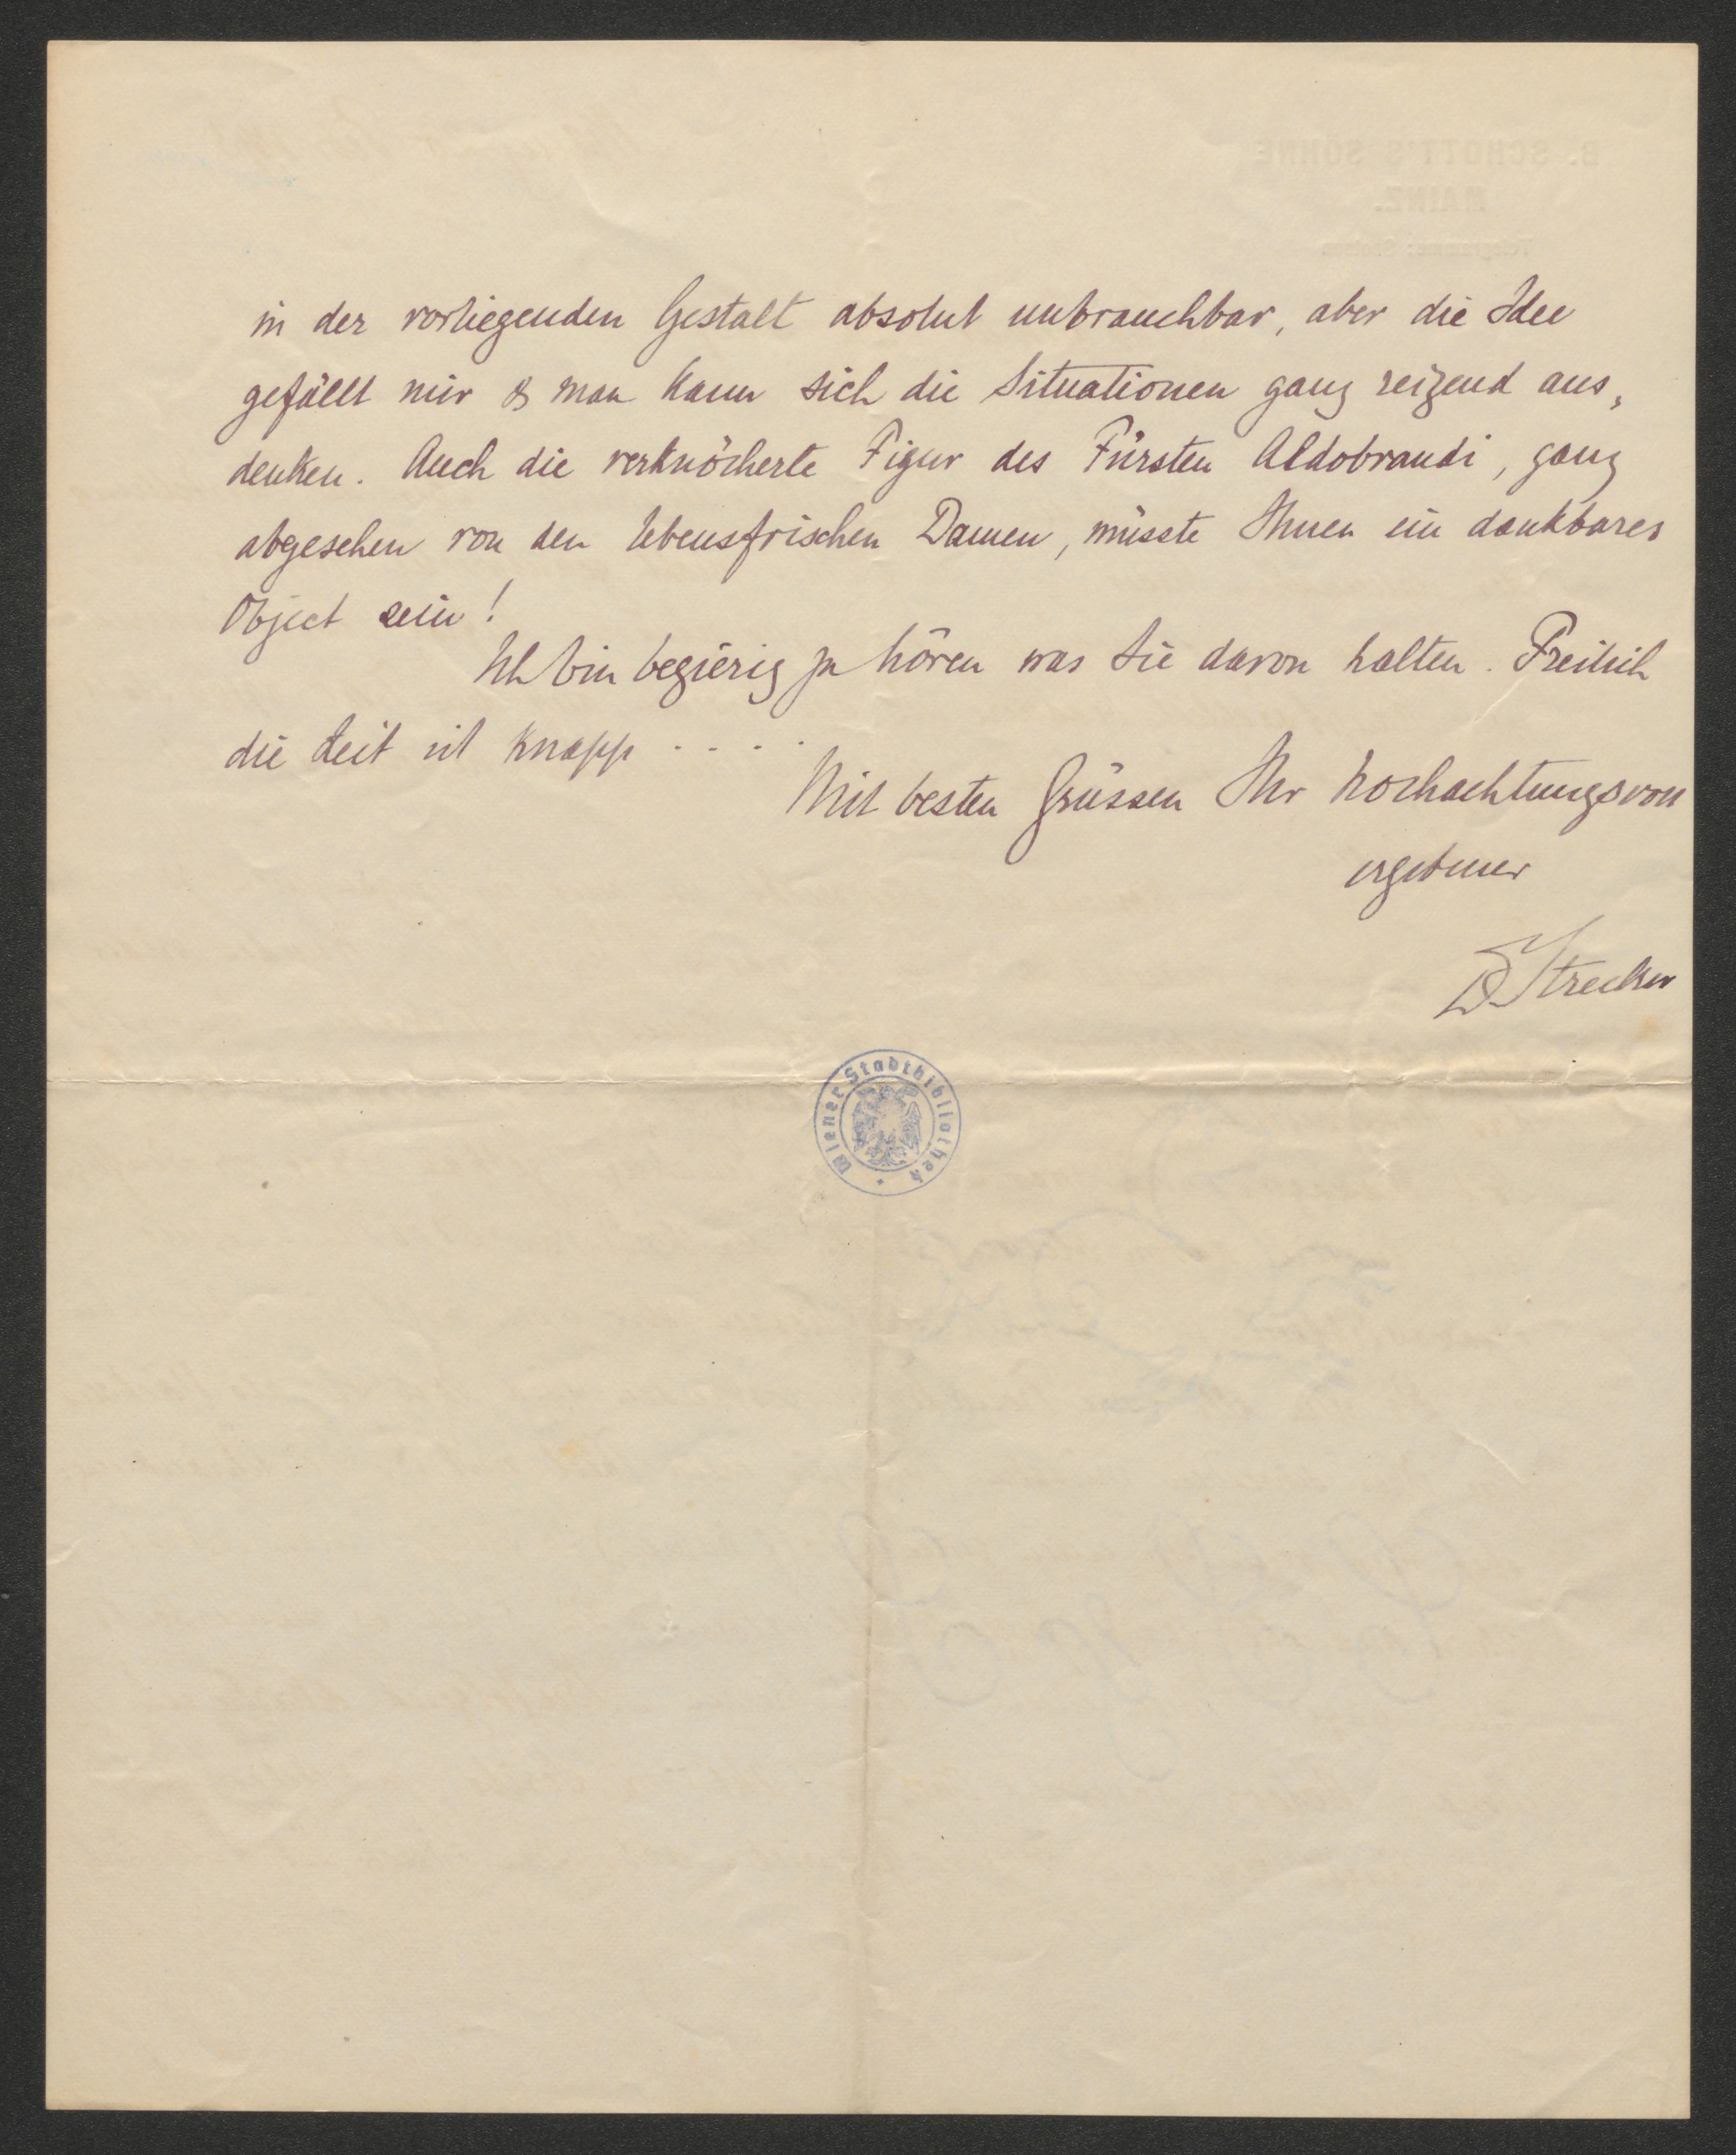 in der vorliegenden Gestalt absolut unbrauchbar, aber die Idee
gefällt mir & man kann sich die Situationen ganz reizend aus-
denken. Auch die verknöcherte Figur des Fürsten Aldobrandi, ganz
abgesehen von den lebensfrischen Damen, müsste Ihnen ein dankbares
Object sein!
Ich bin begierig zu hören was Sie davon halten. Freilich
die Zeit ist knapp . . . .
Mit besten Grüssen Ihr hochachtungsvoll
ergebener
Strecker
Wiener Stadtbibliothek
B. SCHOTT'S SÖHNE
MAINZ.